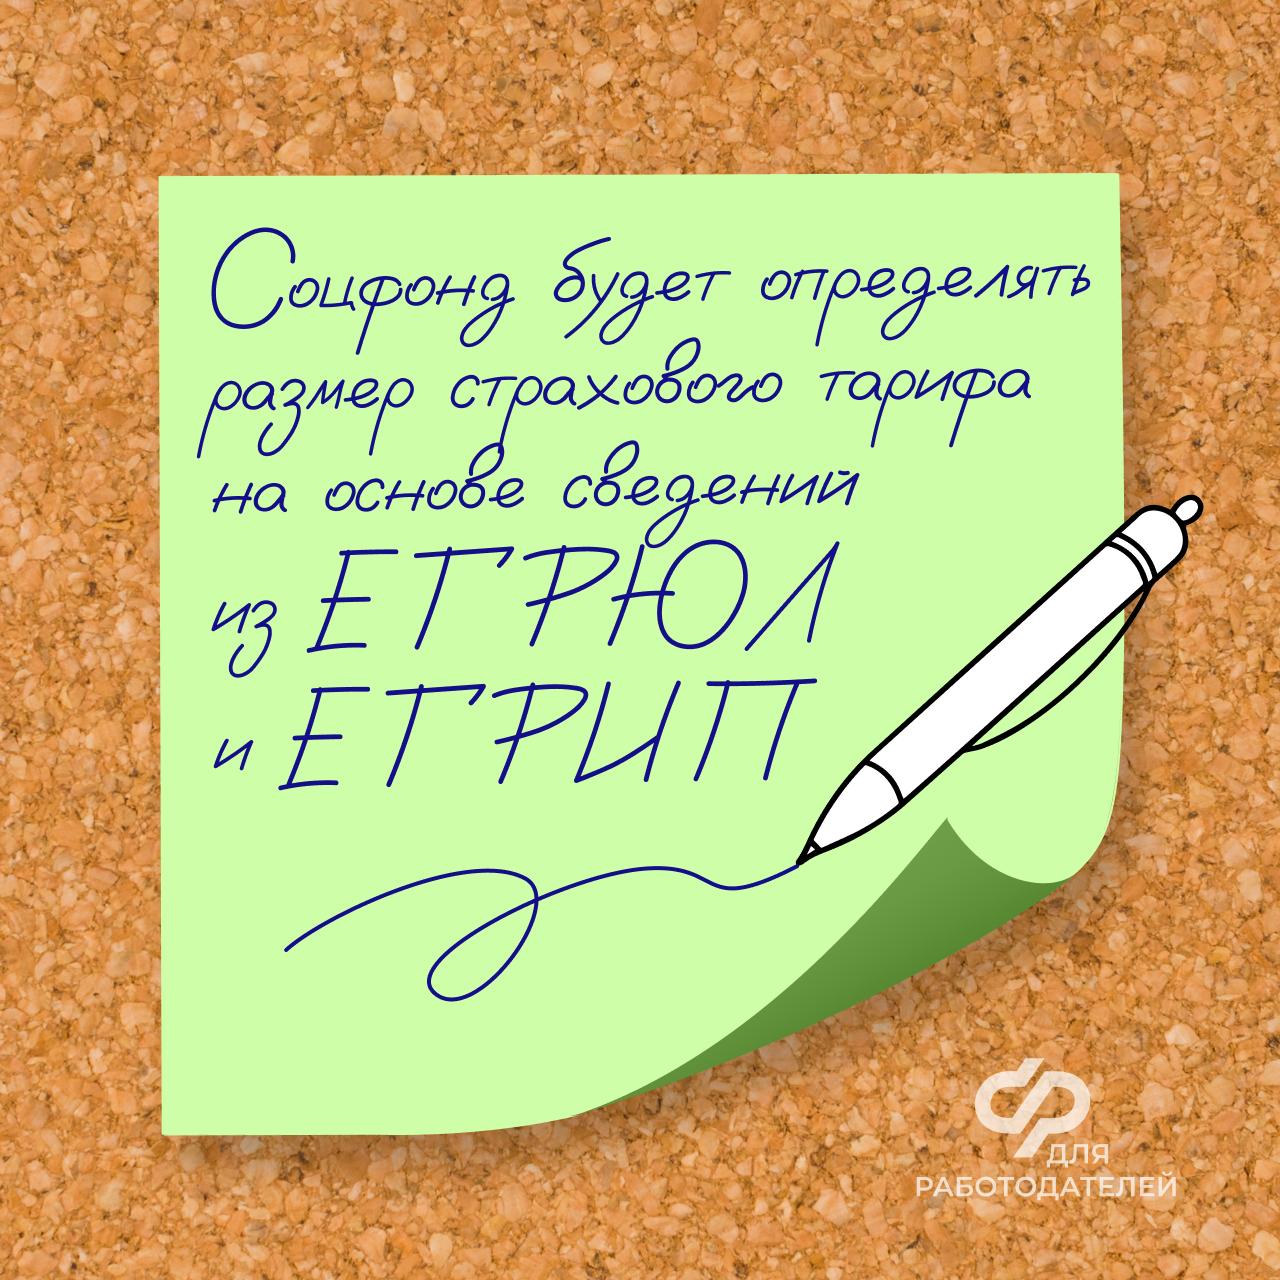 Соцфонд будет определять
размер страхового тарифа
на основе сведений
из ЕГРЮЛ
и ЕГРИП
ДЛЯ
РАБОТОДАТЕЛЕЙ